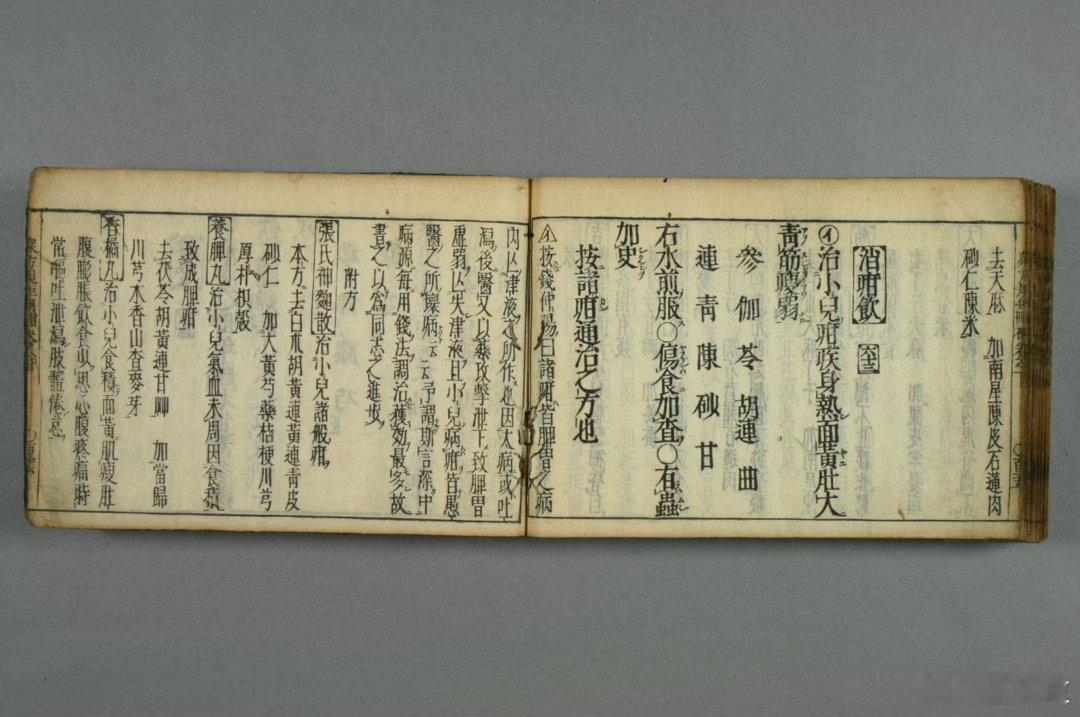 去天麻　加南星陳皮石蓮肉
砂仁陳米
消疳飲　六十三
㋑治小兒疳疾身熱面黃肚大
青筋瘦弱
參　伽　苓　胡連　曲
連　青　陳　砂　甘
右水煎服〇傷食加査〇有蟲
加史
按諸疳通治之方也
按錢仲陽曰諸疳皆脾胃之病
內亡津液之所作也因大病或吐
瀉後醫又以藥攻擊泄下致脾胃
虛弱亡失津液且小兒病疳皆愚
醫之所壞病云云予謂斯言深中
病源每用錢法調治獲效最多故
書之以為同志之進攻
附方
張氏神麴散治小兒諸般疳
本方去白朮胡黃連黃連青皮
砂仁　加大黃芍藥桔梗川芎
厚朴枳殼
養脾丸治小兒氣血未周因食積
致成脾疳
去茯苓胡黃連甘艸　加當歸
川芎木香山查麥芽
香橘丸治小兒食積面黃肌瘦肚
腹膨脹飲食少思心腹疼痛時
常嘔吐泄瀉肢體倦怠